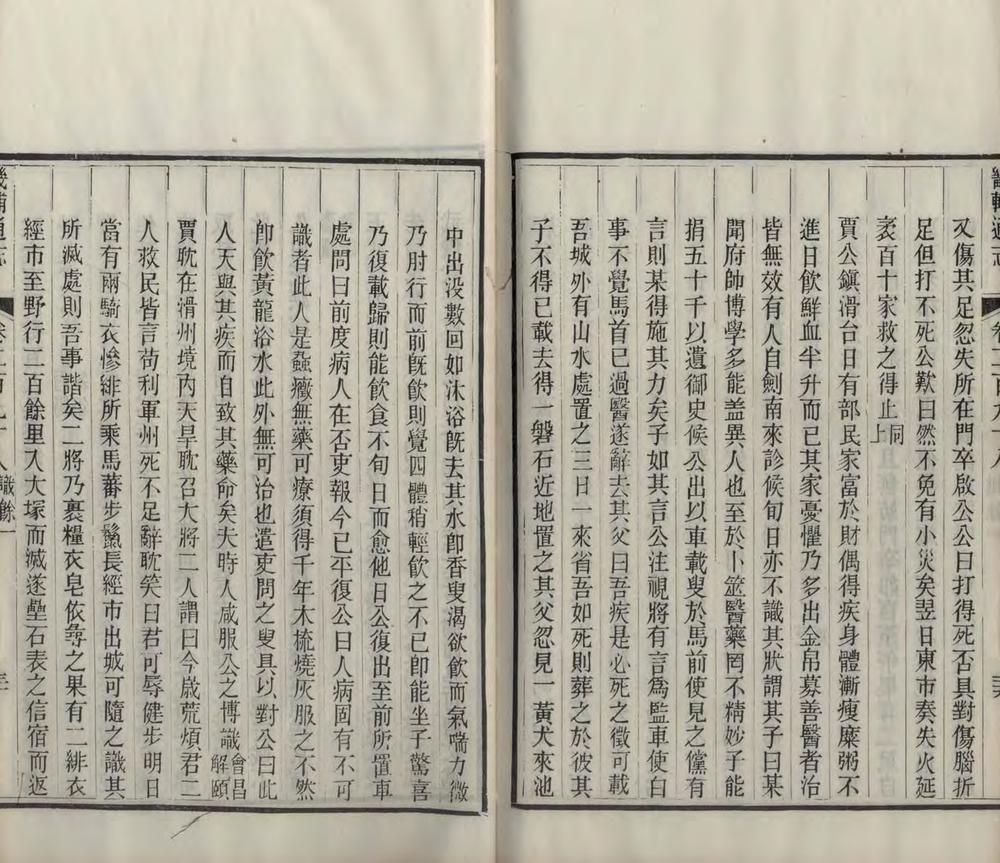 畿輔通志
卷二百九十八
又傷其足忽失所在門卒啟公公曰打得死否具對傷腦折
足但打不死公歎曰然不免有小災矣翌日東市奏失火延
袤百十家救之得止同上
賈公鎮滑台日有部民家富於財偶得疾身體漸瘦糜粥不
進日飲鮮血半升而已其家憂懼乃多出金帛募善醫者治
皆無效有人自劍南來診候旬日亦不識其狀謂其子曰某
聞府帥博學多能盖異人也至於卜筮醫藥罔不精妙子能
捐五十千以遺御史候公出以車載叟於馬前使見之儻有
言則某得施其力矣子如其言公注視將有言為監車使白
事不覺馬首已過醫遂辭去其父曰吾疾是必死之徵可載
吾城外有山水處置之三日一來省吾如死則葬之於彼其
子不得已載去得一磐石近地置之其父忽見一黃犬來池
中出沒數回如沐浴既去其水即香叟渴欲飲而氣喘力微
乃肘行而前既飲則覺四體稍輕飲之不已即能坐子驚喜
乃復載歸則能飲食不旬日而愈他日公復出至前所置車
處問曰前度病人在否吏報今已平復公曰人病固有不可
識者此人是蝨癥無藥可療須得千年木梳燒灰服之不然
即飲黃龍浴水此外無可治也遣吏問之叟具以對公曰此
人天與其疾而自致其藥命矣夫時人咸服公之博識會昌解頤
賈耽在滑州境內天旱耽召大將二人謂曰今歲荒煩君二
人救民皆言苟利軍州死不足辭耽笑曰君可辱健步明日
當有兩騎衣慘緋所乘馬蕃步鬣長經市出城可隨之識其
所滅處則吾事諧矣二將乃裹糧衣皂依尋之果有二緋衣
經市至野行二百餘里入大塚而滅遂壘石表之信宿而返
畿輔通志
卷二百九十八 識餘一